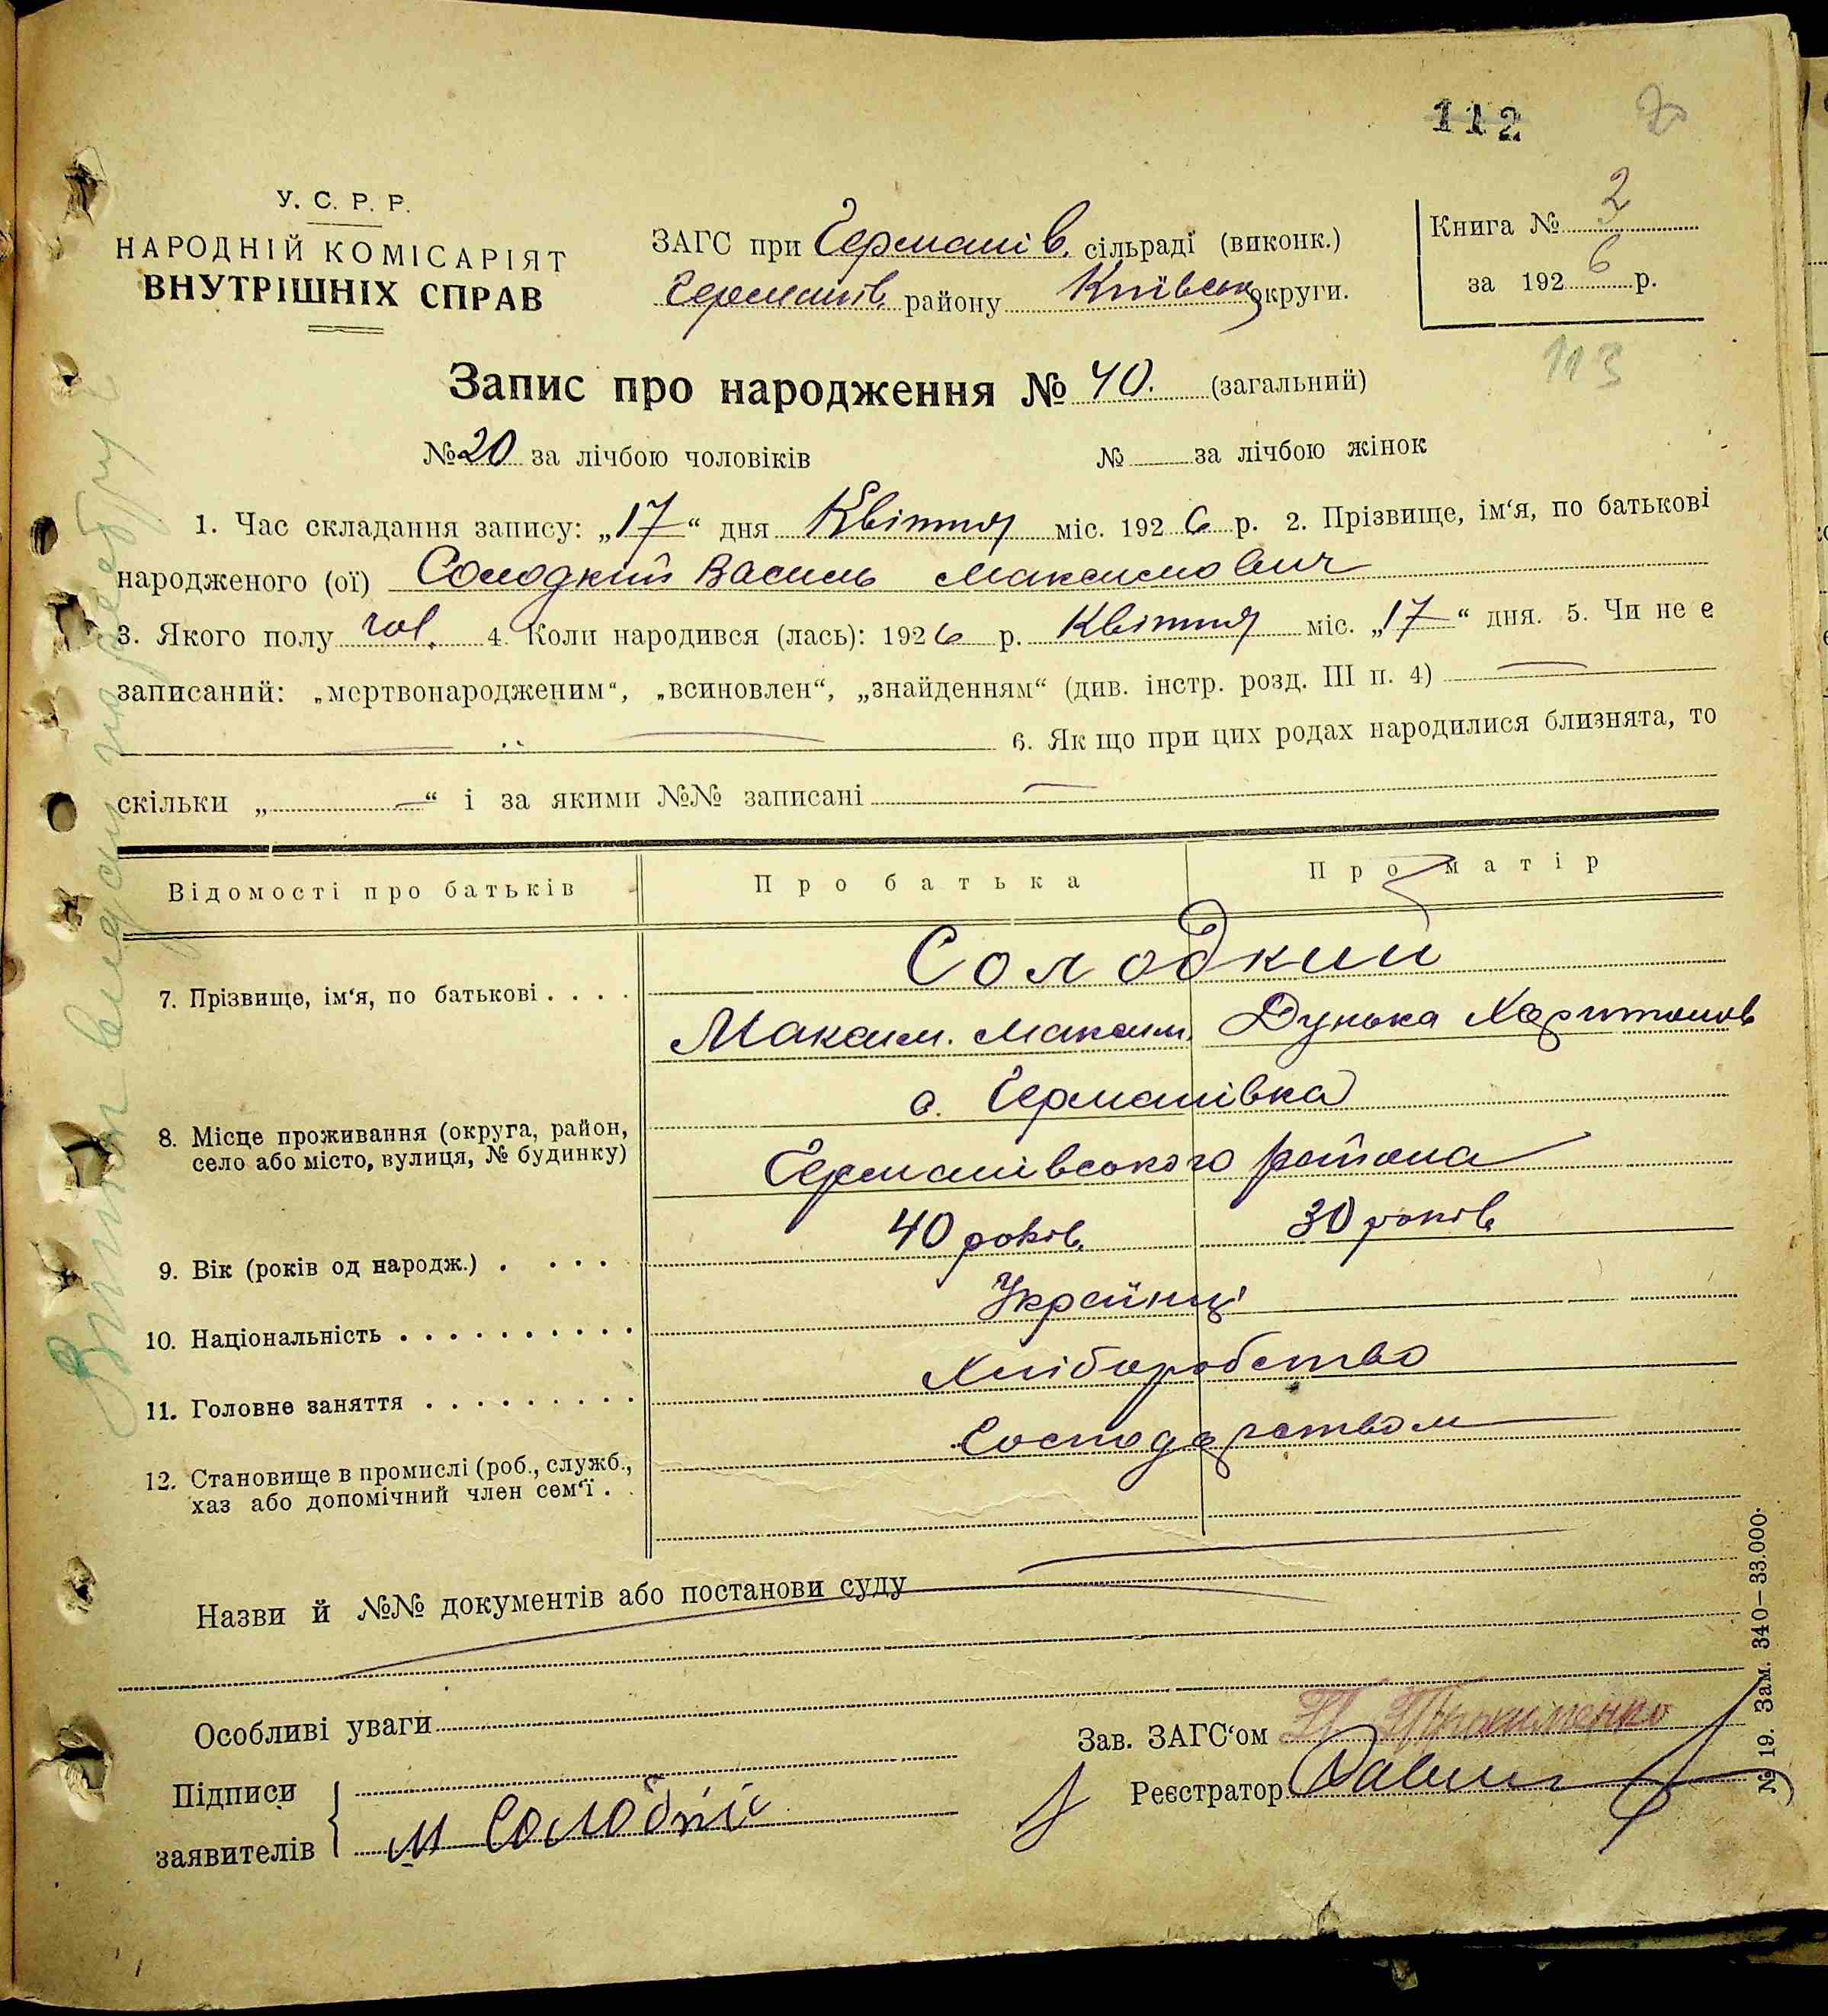 112
У. С. Р. Р.
НАРОДНІЙ КОМІСАРІЯТ
ВНУТРІШНІХ СПРАВ
ЗАГС при Германів. сільраді (виконк.)
Германів. району Київськ округи.
Книга № 2
за 1926 р.
113
Запис про народження № 40. (загальний)
№ 20 за лічбою чоловіків № за лічбою жінок
1. Час складання запису: „17“ дня Квітня міс. 1926 р. 2. Прізвище, ім‘я, по батькові
народженого (ої) Солодкий Василь Максимович
3. Якого полу чол. 4. Коли народився (лась): 1926 р. Квітня міс. „17“ дня. 5. Чи не є
записаний: „мертвонародженим“, „всиновлен“, „знайденням“ (див. інстр. розд. III п. 4) —
6. Як що при цих родах народилися близнята, то
скільки „—“ і за якими №№ записані —
Відомості про батьків Про батька Про матір
7. Прізвище, ім‘я, по батькові . . . . Солодкий
Максим. Максим. Дунька Харитонов
8. Місце проживання (округа, район, село або місто, вулиця, № будинку) с. Германівка
Германівського района
9. Вік (років од народж.) . . . . 40 років. 30 років
10. Національність . . . . . . . . . . Українці
11. Головне заняття . . . . . . . . . Хліборобство
12. Становище в промислі (роб., служб., Господарством
хаз або допомічний член сем‘ї . .
Назви й №№ документів або постанови суду
Особливі уваги
Зав. ЗАГС‘ом
Підписи
заявителів
М Солодкий
Реєстратор
№ 19. Зам. 340—33.000.